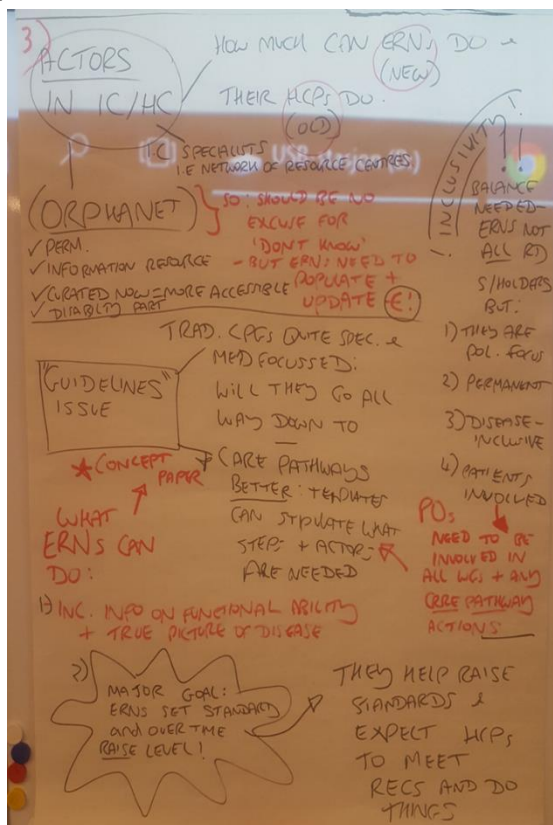 3)
ACTORS
IN IC/HC
HOW MUCH CAN ERNs DO &
(NEW)
THEIR HCPs DO.
(OLD)
IC SPECIALISTS
I.E NETWORK OF RESOURCE CENTRES
(ORPHANET)
✓ PERM.
✓ INFORMATION RESOURCE
✓ CURATED NOW = MORE ACCESSIBLE
✓ DISABILTY PART
SO: SHOULD BE NO
EXCUSE FOR
'DON'T KNOW'
- BUT ERNs NEED TO
POPULATE +
UPDATE €!
INCLUSIVITY!
BALANCE
NEEDED-
ERNS NOT
ALL RD
S/HOLDERS
BUT:
1) THEY ARE
POL. FOCUS
2) PERMANENT
3) DISEASE-
INCLUSIVE
4) PATIENTS
INVOLVED
POs
NEED TO BE
INVOLVED IN
ALL WGs + ANY
CARE PATHWAY
ACTIONS
TRAD. CPGs QUITE SPEC. &
MED FOCUSSED:
WILL THEY GO ALL
WAY DOWN TO
"GUIDELINES"
ISSUE
CARE PATHWAYS
BETTER: TEMPLATES
CAN STIPULATE WHAT
STEPS + ACTORS
ARE NEEDED
* CONCEPT
PAPER
WHAT
ERNs CAN
DO:
1) INC. INFO ON FUNCTIONAL ABILITY
+ TRUE PICTURE OF DISEASE
2)
MAJOR GOAL:
ERNS SET STANDARD
and OVER TIME
RAISE LEVEL!
THEY HELP RAISE
STANDARDS &
EXPECT HCPs
TO MEET
RECS AND DO
THINGS